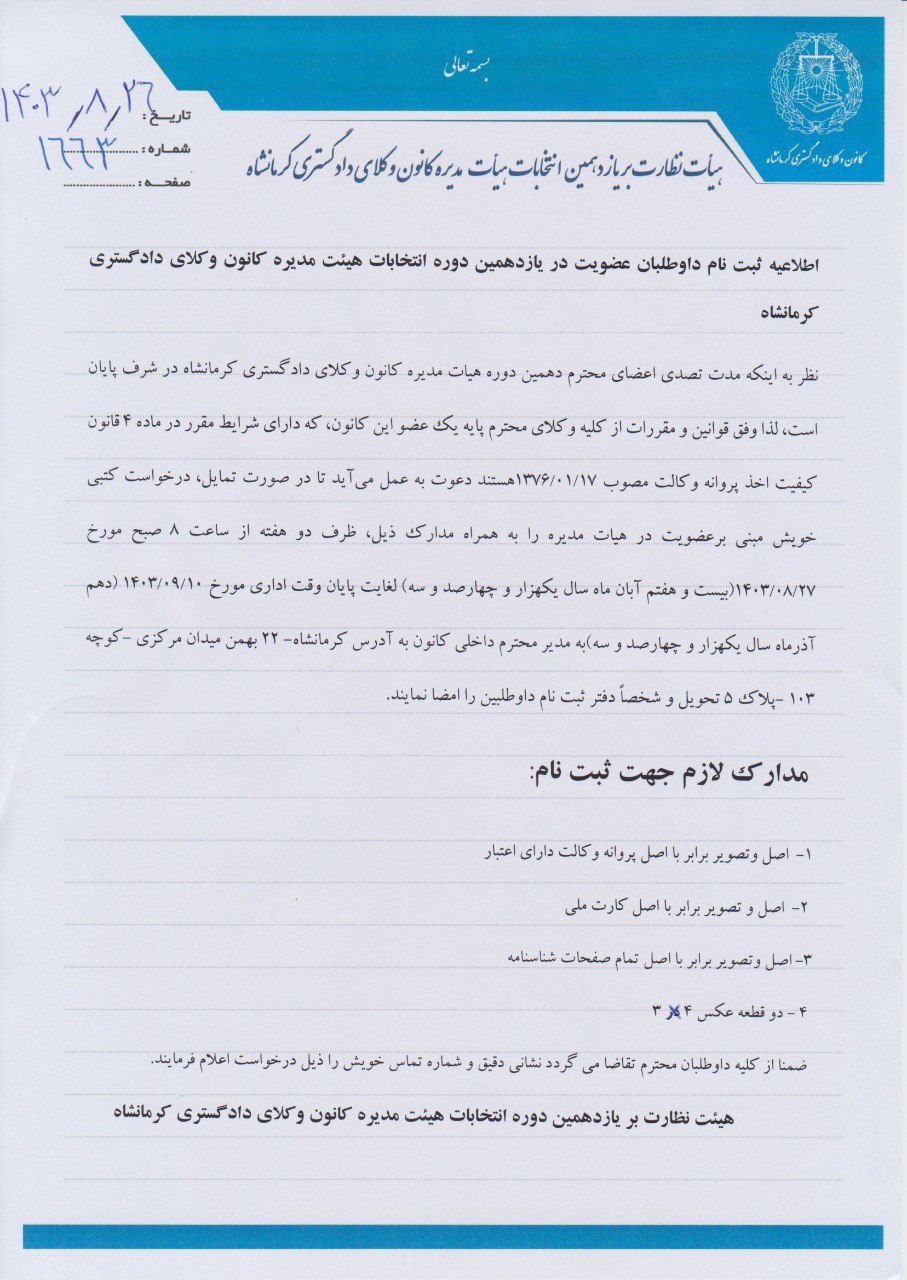 بسمه تعالی
کانون وکلای دادگستری کرمانشاه
تاریخ : ۱۴۰۳٫۸٫۲۶
شماره : ۱۶۶۳
صفحه :
هیأت نظارت بر یازدهمین انتخابات هیأت مدیره کانون وکلای دادگستری کرمانشاه
اطلاعیه ثبت نام داوطلبان عضویت در یازدهمین دوره انتخابات هیئت مدیره کانون وکلای دادگستری
کرمانشاه
نظر به اینکه مدت تصدی اعضای محترم دهمین دوره هیات مدیره کانون وکلای دادگستری کرمانشاه در شرف پایان
است، لذا وفق قوانین و مقررات از کلیه وکلای محترم پایه یک عضو این کانون، که دارای شرایط مقرر در ماده ۴ قانون
کیفیت اخذ پروانه وکالت مصوب ۱۳۷۶/۰۱/۱۷هستند دعوت به عمل می‌آید تا در صورت تمایل، درخواست کتبی
خویش مبنی برعضویت در هیات مدیره را به همراه مدارک ذیل، ظرف دو هفته از ساعت ۸ صبح مورخ
۱۴۰۳/۰۸/۲۷(بیست و هفتم آبان ماه سال یکهزار و چهارصد و سه) لغایت پایان وقت اداری مورخ ۱۴۰۳/۰۹/۱۰ (دهم
آذرماه سال یکهزار و چهارصد و سه)به مدیر محترم داخلی کانون به آدرس کرمانشاه- ۲۲ بهمن میدان مرکزی -کوچه
۱۰۳ -پلاک ۵ تحویل و شخصاً دفتر ثبت نام داوطلبین را امضا نمایند.
مدارک لازم جهت ثبت نام:
۱- اصل وتصویر برابر با اصل پروانه وکالت دارای اعتبار
۲- اصل و تصویر برابر با اصل کارت ملی
۳-اصل وتصویر برابر با اصل تمام صفحات شناسنامه
۴ - دو قطعه عکس ۴ در ۳
ضمنا از کلیه داوطلبان محترم تقاضا می گردد نشانی دقیق و شماره تماس خویش را ذیل درخواست اعلام فرمایند.
هیئت نظارت بر یازدهمین دوره انتخابات هیئت مدیره کانون وکلای دادگستری کرمانشاه